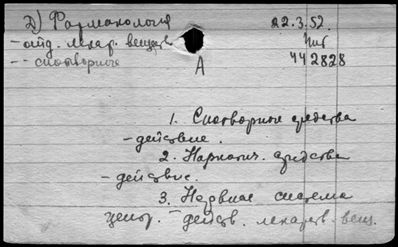 Д) Фармакология 22.3.52.
- отд. лекар. веществ
- - снотворные 442828
А
1. Снотворные средства
- действие.
2. Наркотич. средства
- действие.
3. Нервная система
центр. - действ. лекарств. вещ.